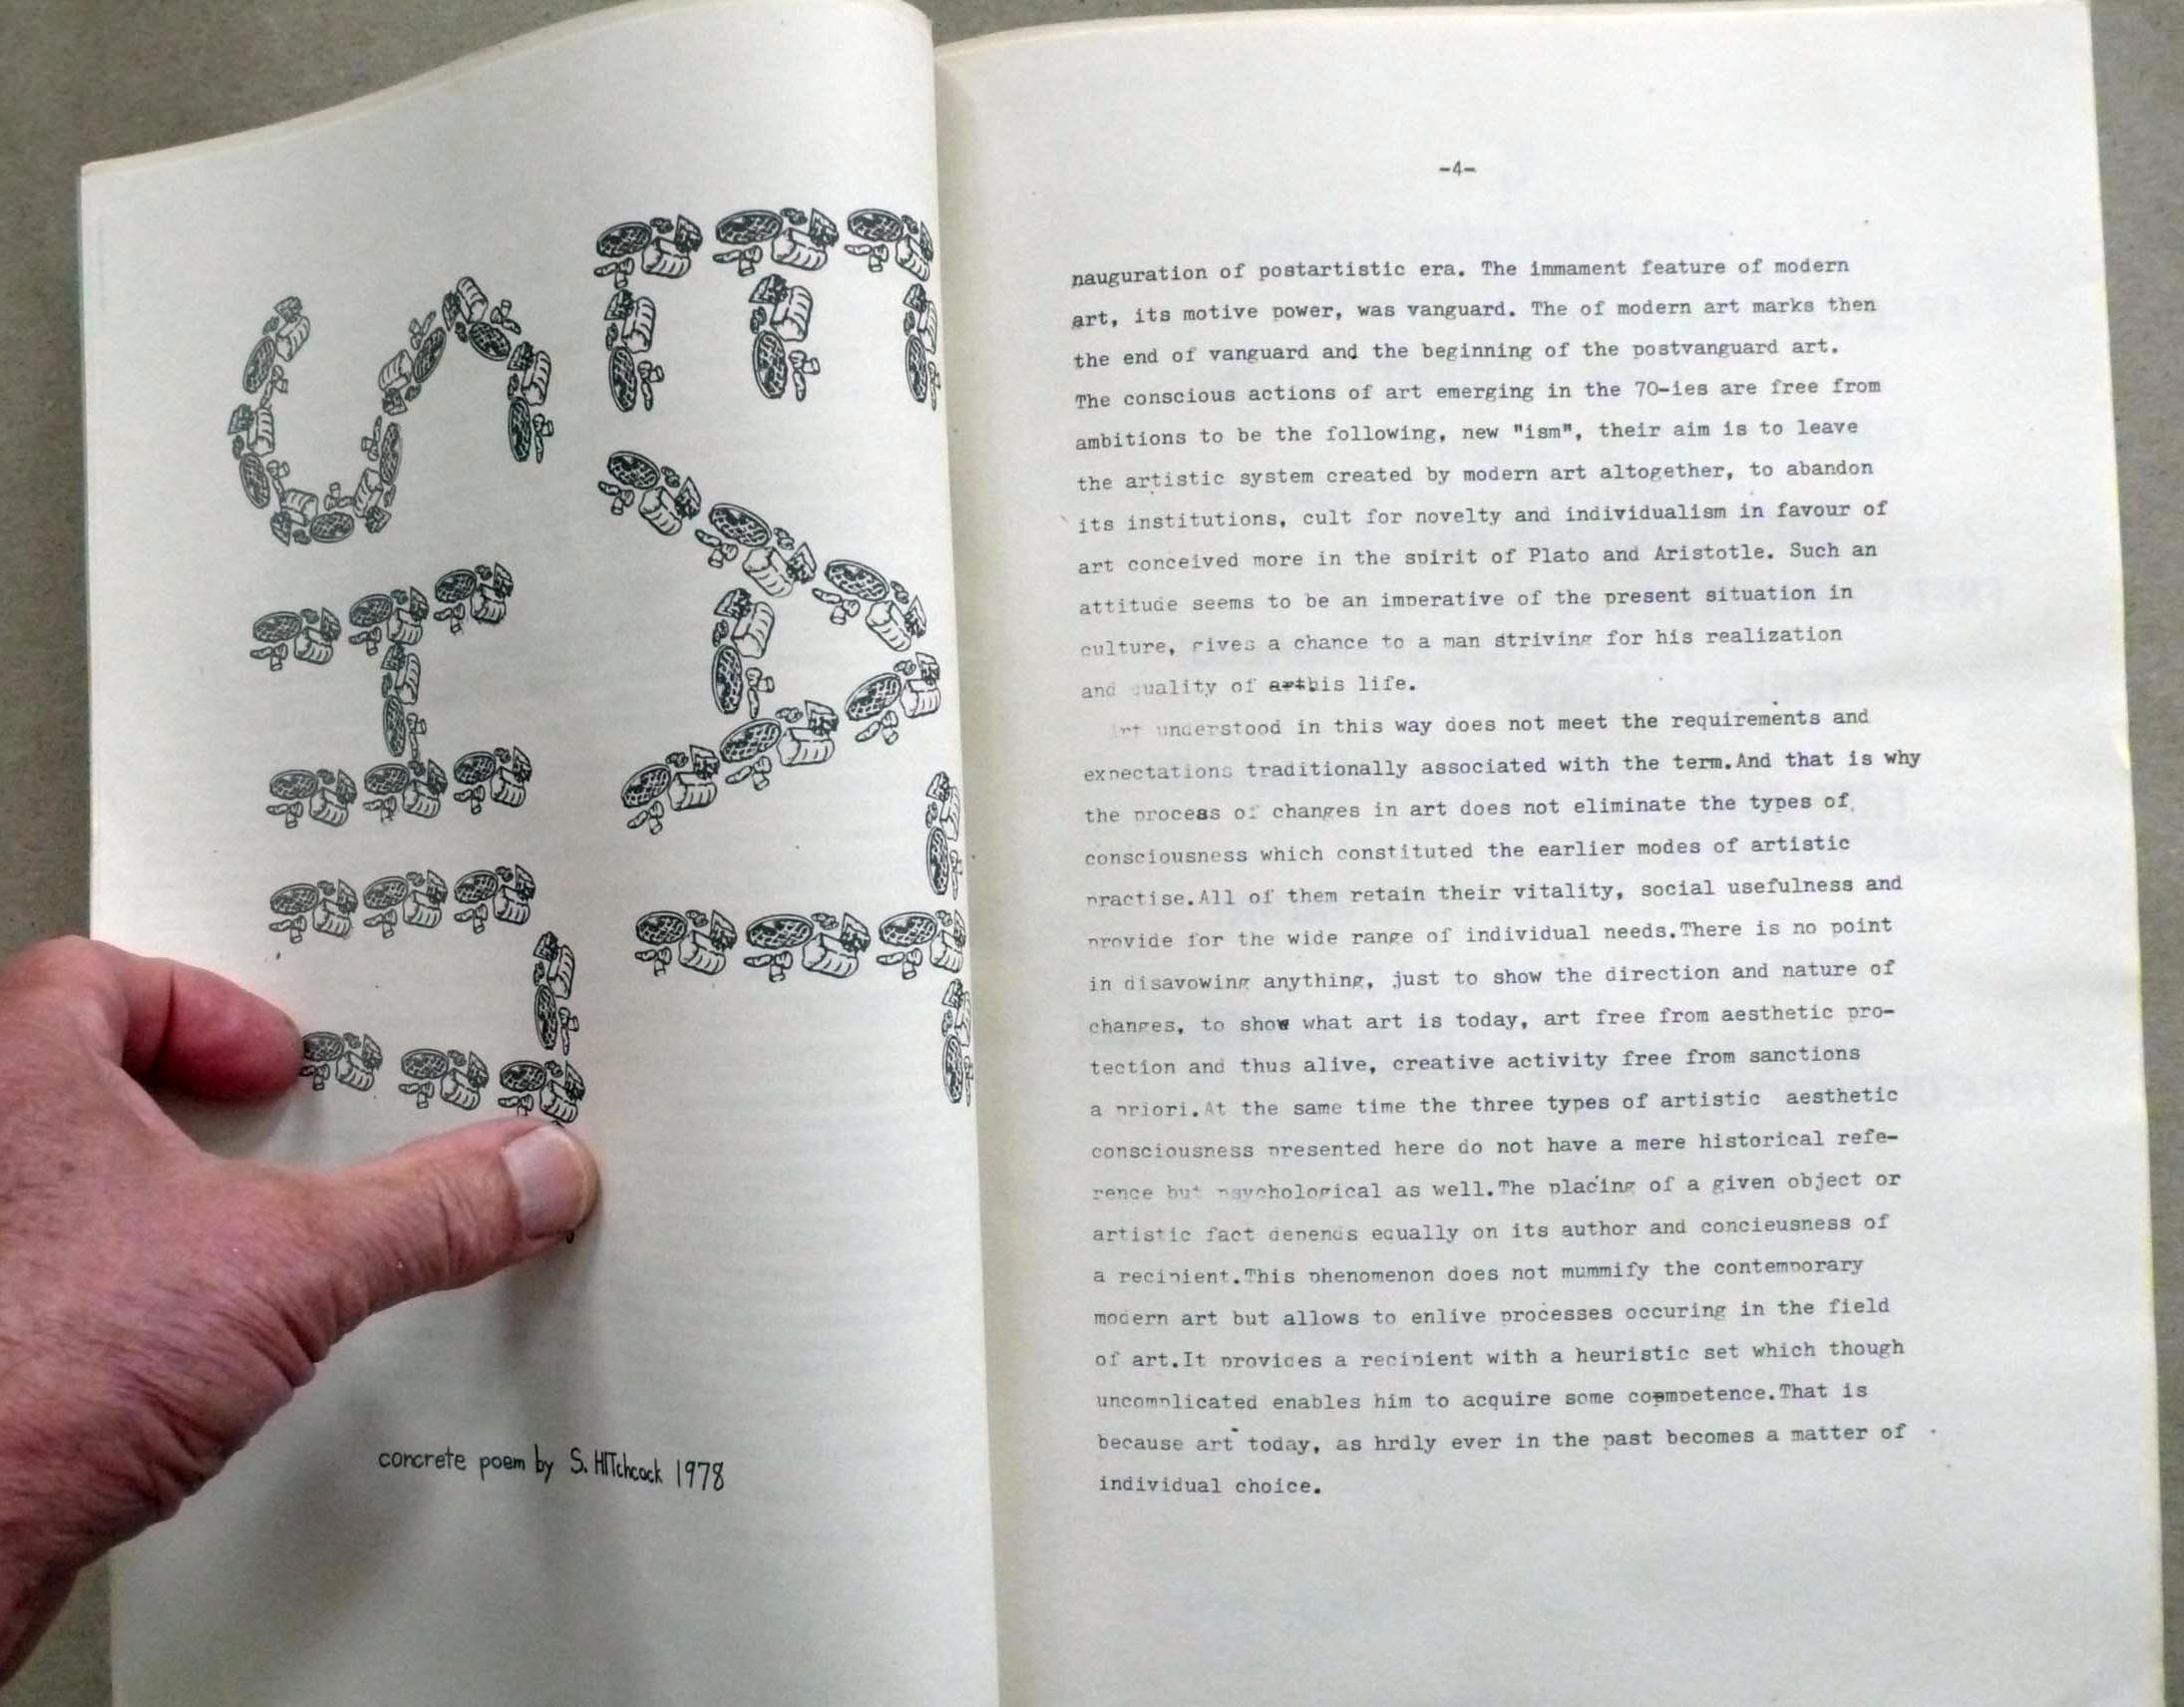 concrete poem by S. HITchcock 1978
-4-
nauguration of postartistic era. The immament feature of modern
art, its motive power, was vanguard. The of modern art marks then
the end of vanguard and the beginning of the postvanguard art.
The conscious actions of art emerging in the 70-ies are free from
ambitions to be the following, new "ism", their aim is to leave
the artistic system created by modern art altogether, to abandon
its institutions, cult for novelty and individualism in favour of
art conceived more in the spirit of Plato and Aristotle. Such an
attitude seems to be an imperative of the present situation in
culture, gives a chance to a man striving for his realization
and quality of arthis life.
Art understood in this way does not meet the requirements and
expectations traditionally associated with the term.And that is why
the process of changes in art does not eliminate the types of
consciousness which constituted the earlier modes of artistic
practise.All of them retain their vitality, social usefulness and
provide for the wide range of individual needs.There is no point
in disavowing anything, just to show the direction and nature of
changes, to show what art is today, art free from aesthetic pro-
tection and thus alive, creative activity free from sanctions
a priori.At the same time the three types of artistic aesthetic
consciousness presented here do not have a mere historical refe-
rence but psychological as well.The placing of a given object or
artistic fact depends equally on its author and concieusness of
a recipient.This phenomenon does not mummify the contemporary
modern art but allows to enlive processes occuring in the field
of art.It provides a recipient with a heuristic set which though
uncomplicated enables him to acquire some competence.That is
because art today, as hrdly ever in the past becomes a matter of
individual choice.